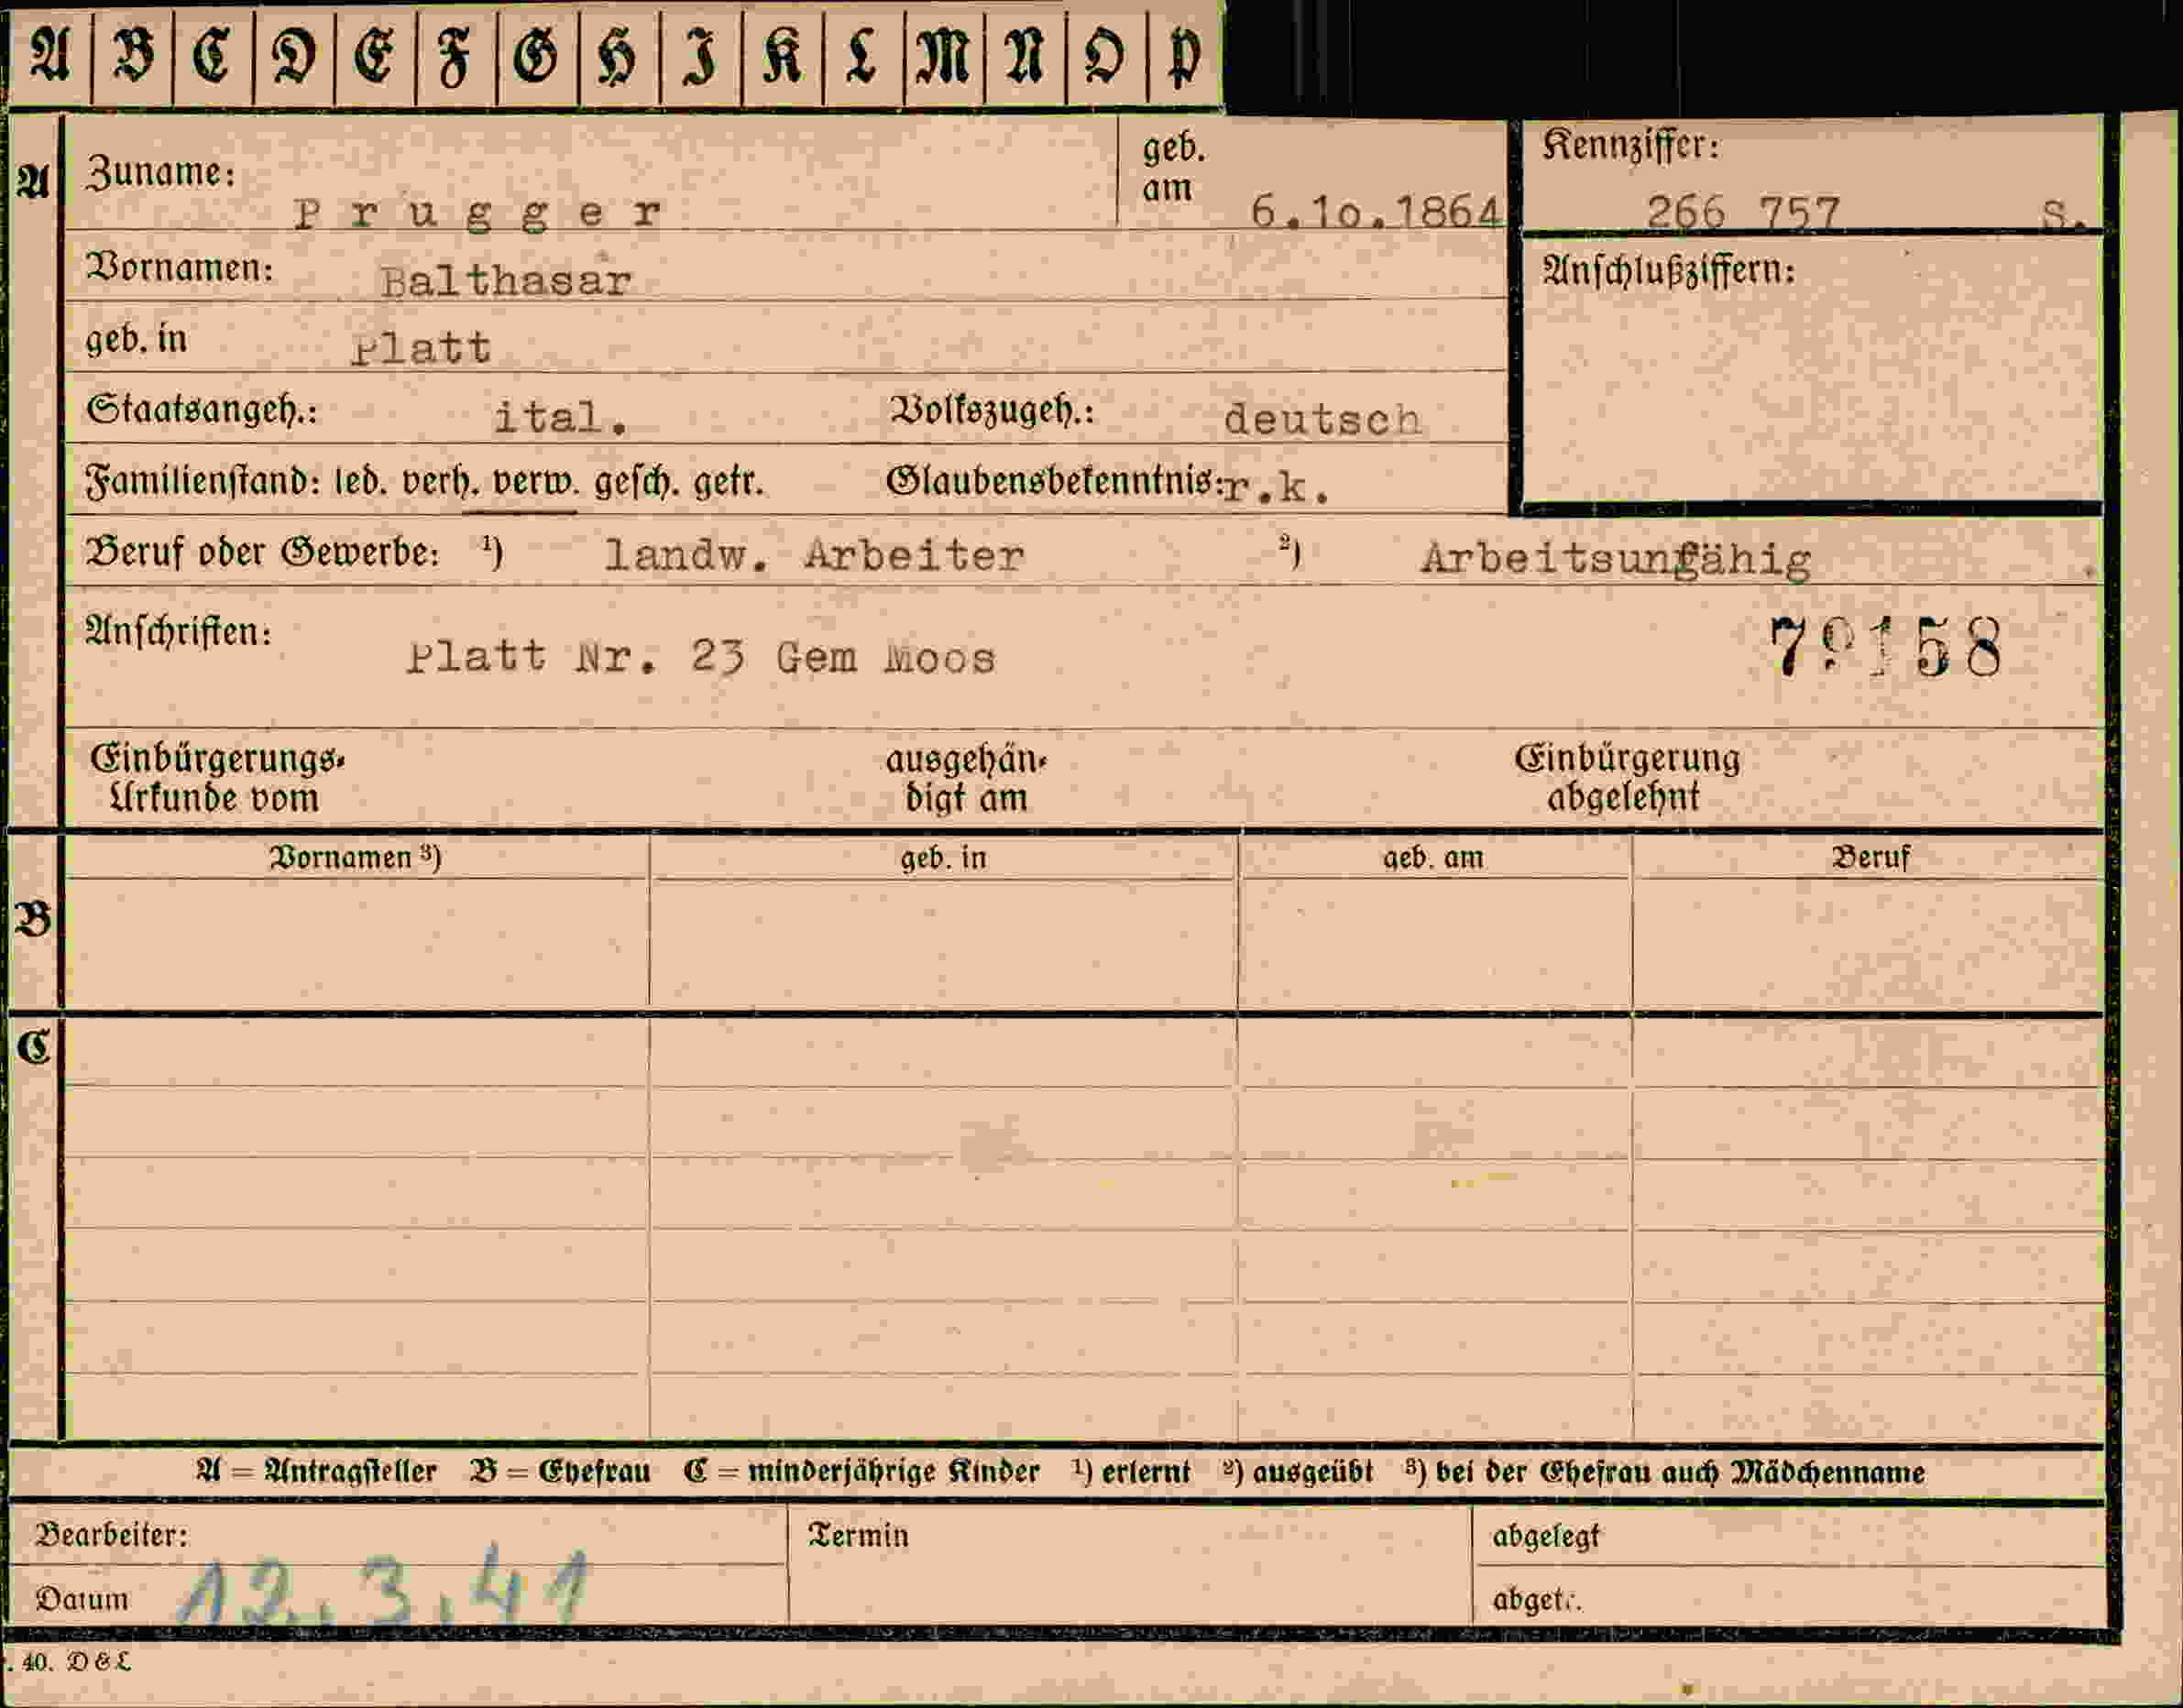 A B C D E F G H I K L M N O P
A Zuname: Prugger geb. am 6.10.1864 Kennziffer: 266 757 S.
Vornamen: Balthasar Anschlußziffern:
geb. in Platt
Staatsangeh.: ital. Volkszugeh.: deutsch
Familienstand: led. verh. verw. gesch. getr. Glaubensbekenntnis: r.k.
Beruf oder Gewerbe: ¹) landw. Arbeiter ²) Arbeitsunfähig
Anschriften: Platt Nr. 23 Gem Moos
Einbürgerungs- ausgehän- Einbürgerung
Urkunde vom digt am abgelehnt
Vornamen ³) geb. in geb. am Beruf
B
C
A = Antragsteller B = Ehefrau C = minderjährige Kinder ¹) erlernt ²) ausgeübt ³) bei der Ehefrau auch Mädchenname
Bearbeiter: Termin abgelegt
Datum 12.3.41
. 40. D & L